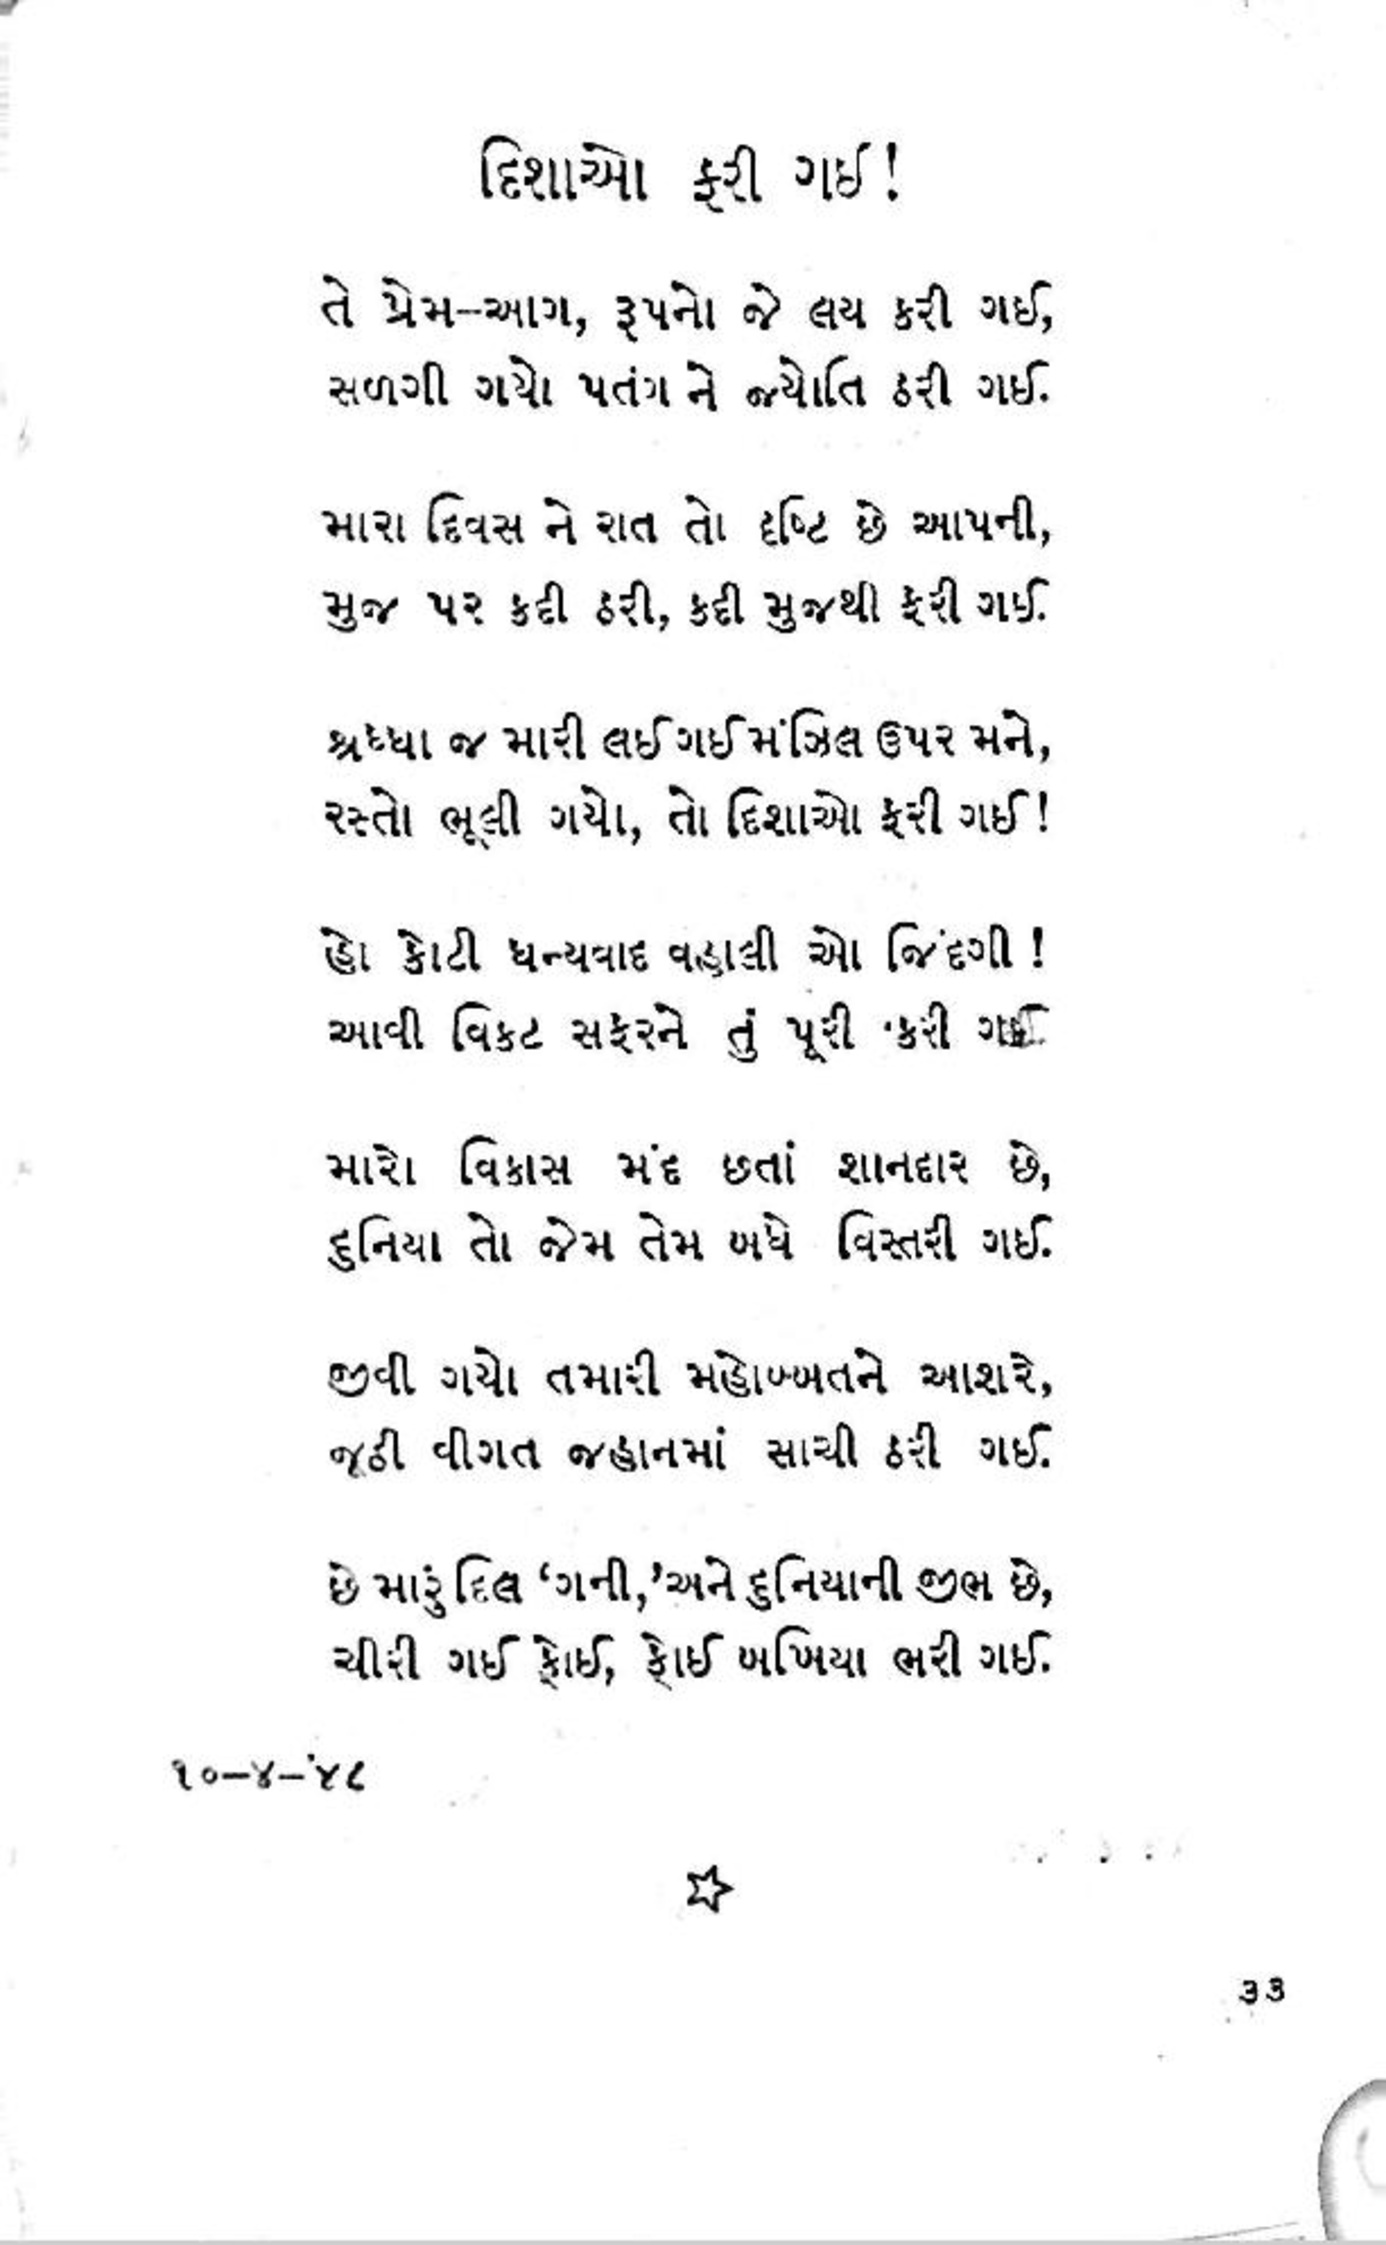 દિશાઓ ફરી ગઈ!
તે પ્રેમ-આગ, રૂપનો જે લય કરી ગઈ,
સળગી ગયો પતંગ ને જ્યોતિ ઠરી ગઈ.
મારા દિવસ ને રાત તો દૃષ્ટિ છે આપની,
મુજ પર કદી ઠરી, કદી મુજથી ફરી ગઈ.
શ્રધ્ધા જ મારી લઈ ગઈ મંઝિલ ઉપર મને,
રસ્તો ભૂલી ગયો, તો દિશાઓ ફરી ગઈ!
હો કોટી ધન્યવાદ વહાલી ઓ જિંદગી!
આવી વિકટ સફરને તું પૂરી કરી ગઈ
મારો વિકાસ મંદ છતાં શાનદાર છે,
દુનિયા તો જેમ તેમ બધે વિસ્તરી ગઈ.
જીવી ગયો તમારી મહોબ્બતને આશરે,
જૂઠી વીગત જહાનમાં સાચી ઠરી ગઈ.
છે મારું દિલ ‘ગની,’ અને દુનિયાની જીભ છે,
ચીરી ગઈ કોઈ, કોઈ બખિયા ભરી ગઈ.
૧૦-૪-'૪૮
૩૩